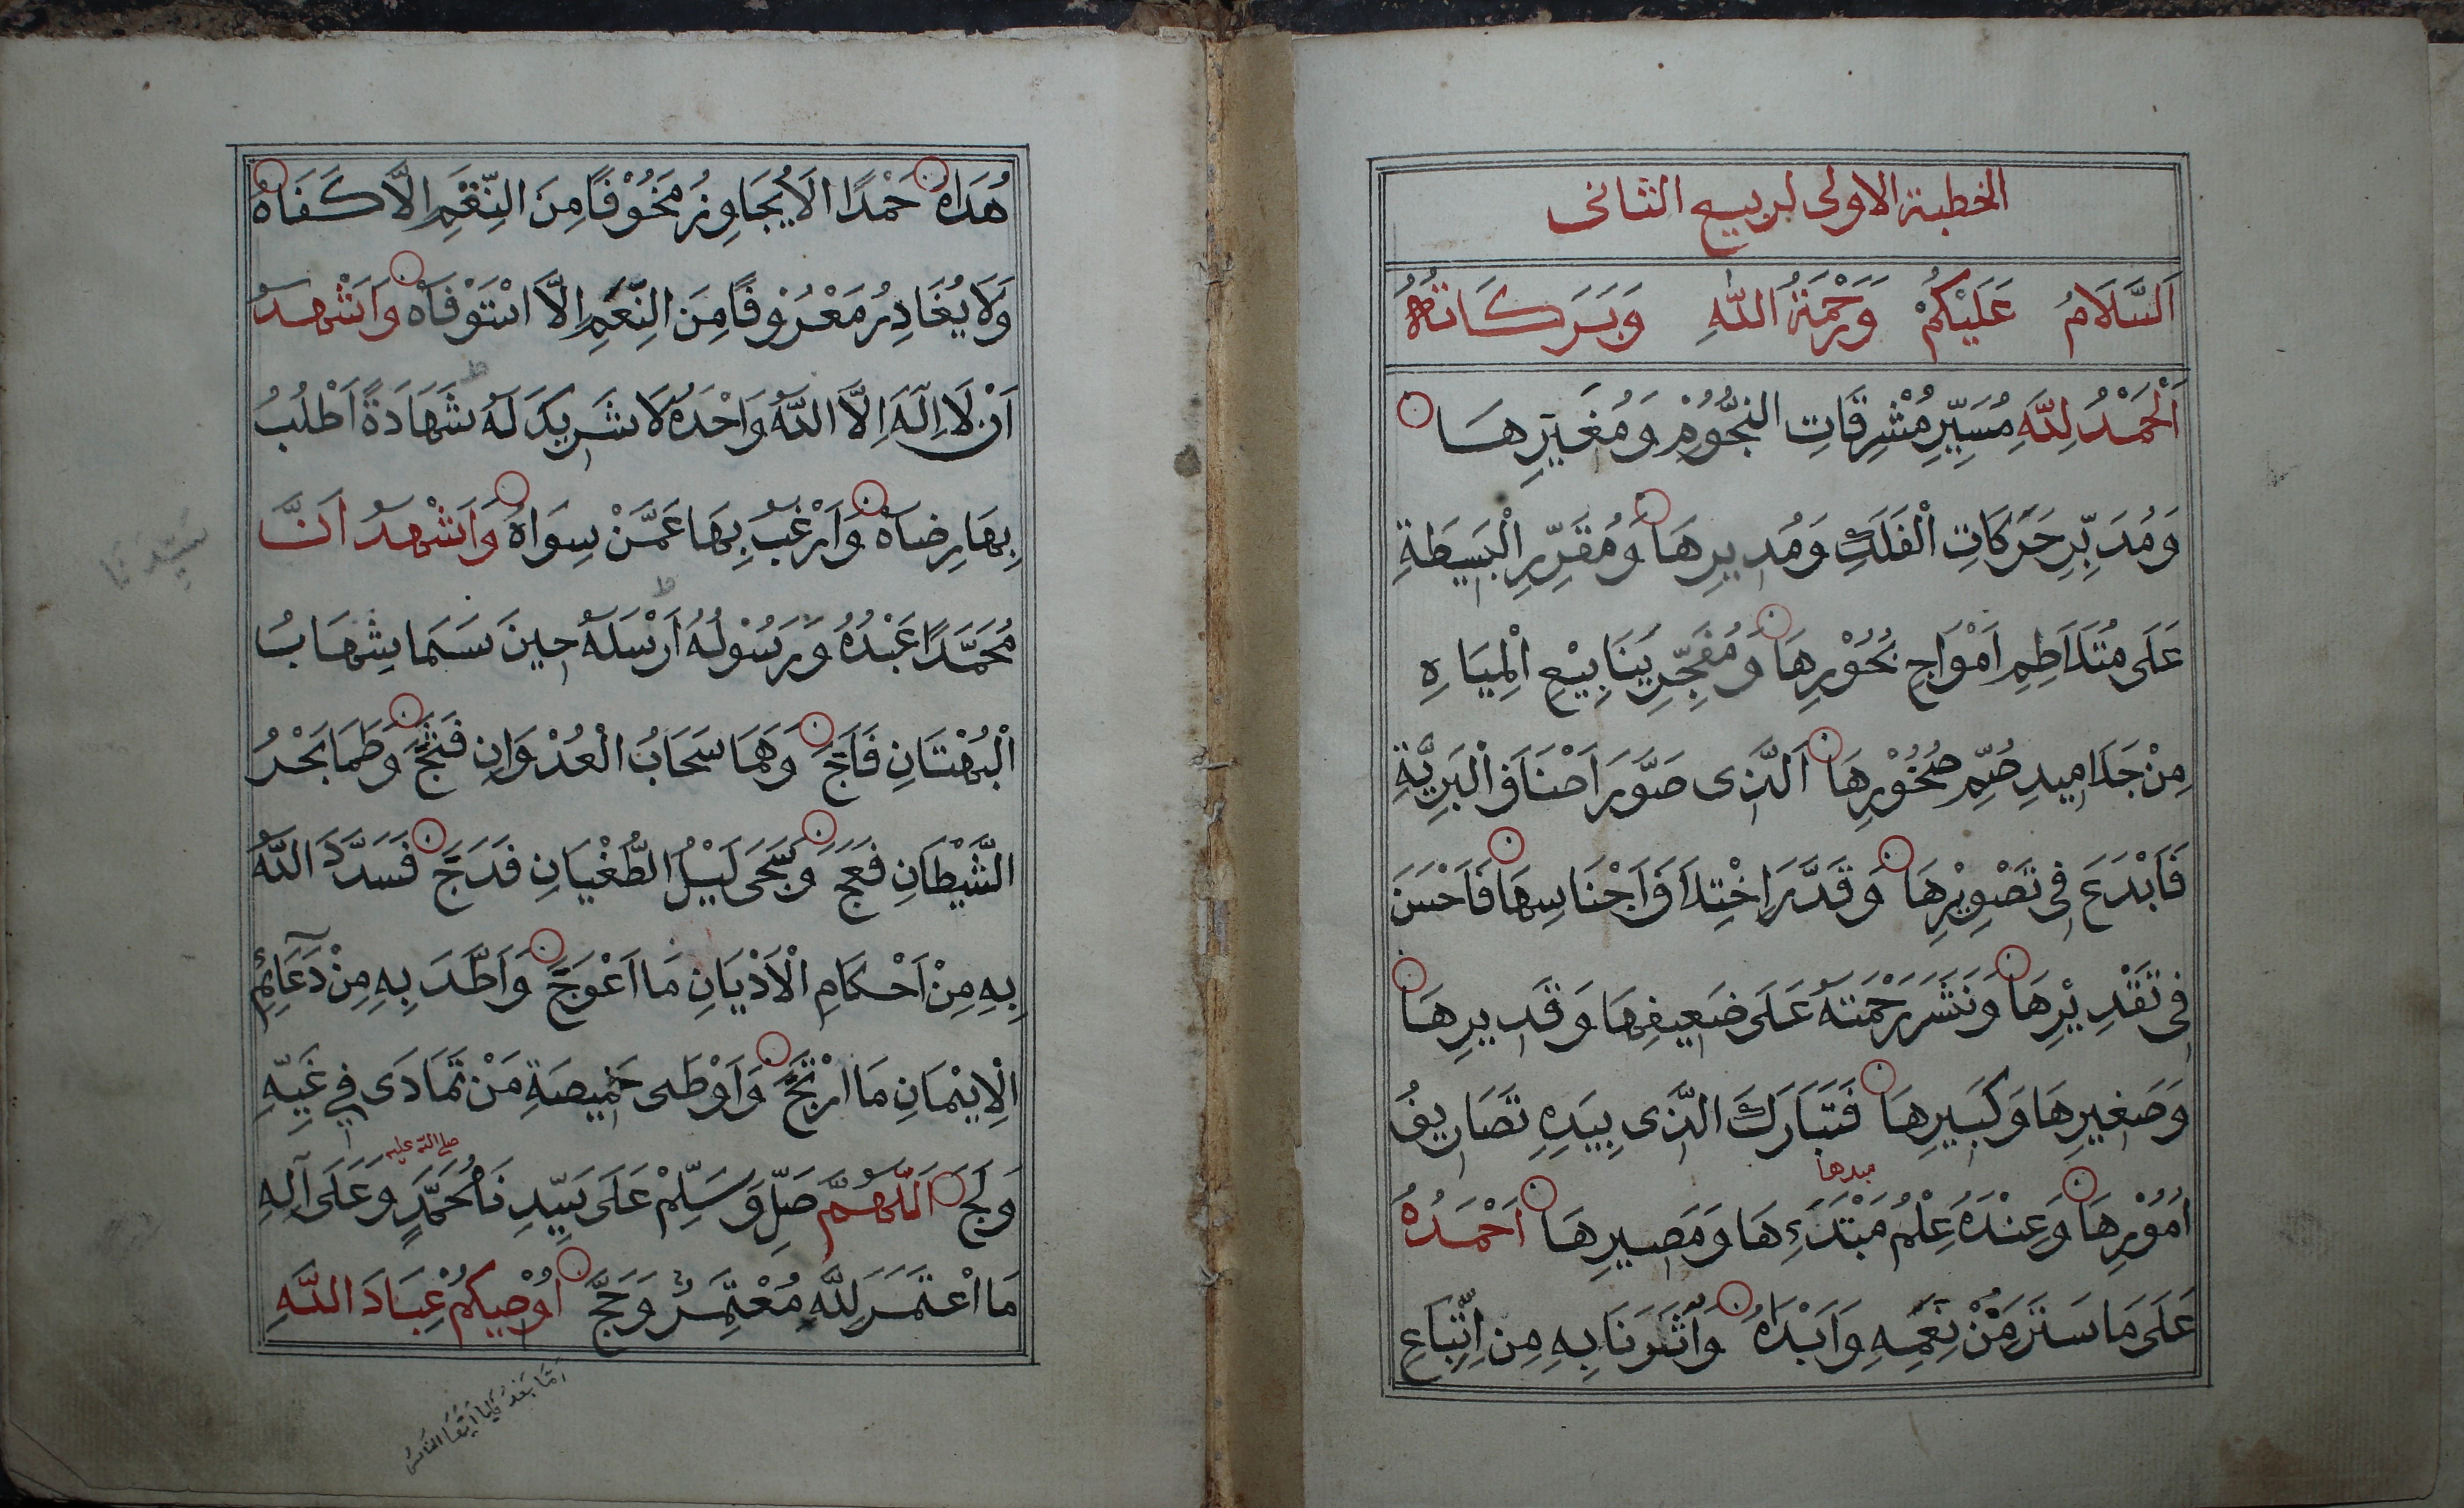 الخطبة الاولى لربيع الثانى
اَلسَّلَامُ عَلَيْكُمْ وَرَحْمَةُ اللّٰهِ وَبَرَكَاتُهُ
اَلْحَمْدُ لِلّٰهِ مُسَيِّرِ مُشْرِقَاتِ النُّجُوْمِ وَمُغَيِّرِهَا
وَمُدَبِّرِ حَرَكَاتِ الْفَلَكِ وَمُدِيرِهَا وَمُقَرِّرِ الْبَسِيطَةِ
عَلَى مُتَلَاطِمِ اَمْوَاجِ بُحُوْرِهَا وَمُفَجِّرِ يَنَابِيْعِ الْمِيَاهِ
مِنْ جَلَامِيدِ صُمِّ صُخُوْرِهَا اَلَّذِى صَوَّرَ اَصْنَافَ الْبَرِيَّةِ
فَاَبْدَعَ فِى تَصْوِيْرِهَا وَقَدَّرَ اخْتِلَافَ اَجْنَاسِهَا فَاَحْسَنَ
فِى تَقْدِيْرِهَا وَنَشَرَ رَحْمَتَهُ عَلَى ضَعِيفِهَا وَقَدِيرِهَا
وَصَغِيرِهَا وَكَبِيرِهَا فَتَبَارَكَ الَّذِى بِيَدِهِ تَصَارِيفُ
مبدها
اُمُوْرِهَا وَعِنْدَهُ عِلْمُ مَبْتَدَءِهَا وَمَصِيرِهَا اَحْمَدُهُ
عَلَى مَا سَتَرَ مِنْ نِعَمِهِ وَاَبْدَاهُ وَآثَرَنَا بِهِ مِنِ اتِّبَاعِ
هُدَاهُ حَمْدًا لَا يُجَاوِزُ مَخُوْفًا مِنَ النِّقَمِ اِلَّا كَفَاهُ
وَلَا يُغَادِرُ مَعْرُوْفًا مِنَ النِّعَمِ اِلَّا اسْتَوْفَاهُ وَاَشْهَدُ
اَنْ لَا اِلٰهَ اِلَّا اللّٰهُ وَاحْدَهُ لَا شَرِيكَ لَهُ شَهَادَةً اَطْلُبُ
بِهَا رِضَاهُ وَاَرْغَبُ بِهَا عَمَّنْ سِوَاهُ وَاَشْهَدُ اَنَّ
سَيِّدَنَا
مُحَمَّدًا عَبْدُهُ وَرَسُوْلُهُ اَرْسَلَهُ حِينَ سَمَا شِهَابُ
الْبُهْتَانِ فَاَجَّ وَهَمَا سَحَابُ الْعُدْوَانِ فَثَجَّ وَطَمَا بَحْرُ
الشَّيْطَانِ فَعَجَّ وَسَجَى لَيْلُ الطُّغْيَانِ فَدَجَّ فَسَدَّدَ اللّٰهُ
بِهِ مِنْ اَحْكَامِ الْاَدْيَانِ مَا اعْوَجَّ وَاَطَّدَ بِهِ مِنْ دَعَائِمِ
الْاِيْمَانِ مَا ارْتَجَّ وَاَوْطَى خَمِيصَةِ مَنْ تَمَادَى فِى غَيِّهِ
صلى الله عليه
وَلَجَّ اَللّٰهُمَّ صَلِّ وَسَلِّمْ عَلَى سَيِّدِنَا مُحَمَّدٍ وَعَلَى آلِهِ
مَا اعْتَمَرَ لِلّٰهِ مُعْتَمِرٌ وَحَجَّ اُوْصِيكُمْ عِبَادَ اللّٰهِ
اَمَّا بَعْدُ فَيَا اَيُّهَا النَّاسُ